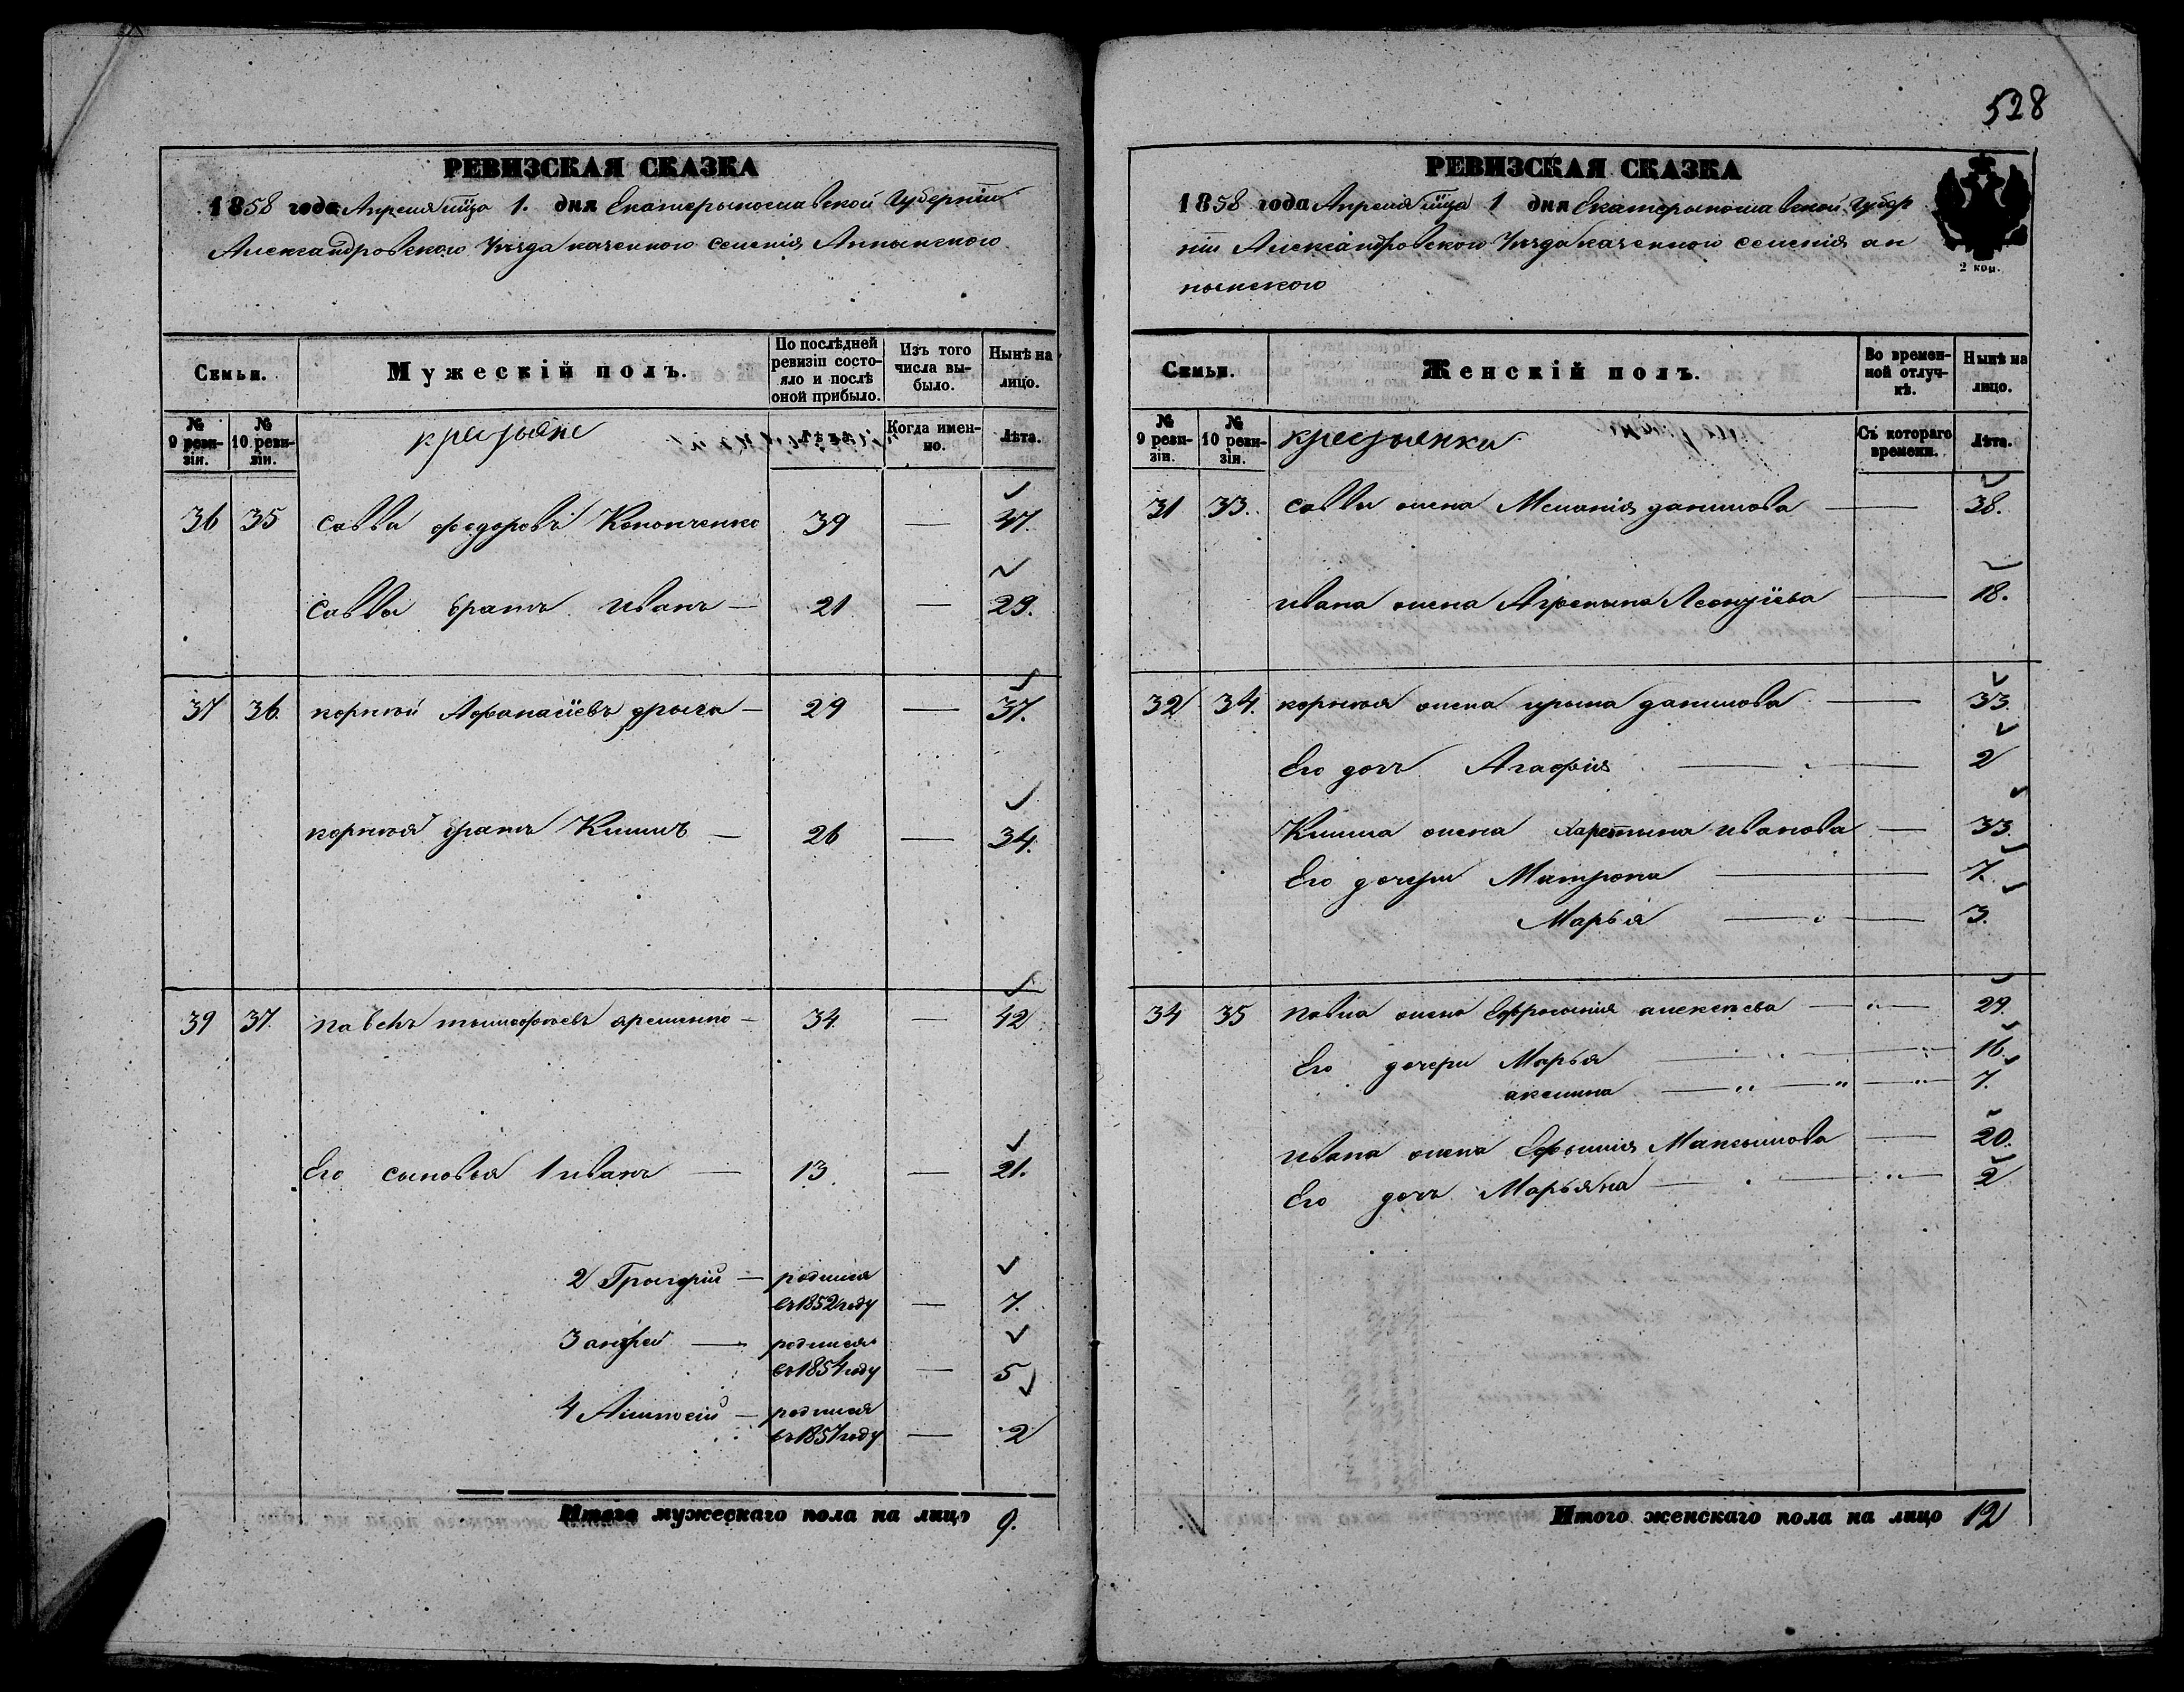 РЕВИЗСКАЯ СКАЗКА
1858 года Апреля мца 1. дня Екатерынославской Губерніи
Александровского Уезда казенного селенія Аннынского
Семьи.
Мужескій полъ.
По послѣдней ревизіи состояло и послѣ оной прибыло.
Изъ того числа выбыло.
Нынѣ на лицо.
№ 9 ревизіи.
№ 10 ревизіи.
крестьяне
Когда именно.
Лѣта.
36 35 Савва федоровъ Кононченко 39 — 47.
Саввы братъ иванъ — 21 — 29.
37 36. корней Афанасіевъ дрыга — 29 — 37.
корнея братъ Климъ — 26 — 34.
39 37. павелъ тымофеевъ яременко — 34. — 42
Его сыновья 1 иванъ — 13. — 21.
2 Грыгорій — родился
въ 1852 году — 7.
3 андрей — родился
въ 1854 году — 5
4 — родился
въ 1857 году — 2
Итого мужескаго пола на лицо 9.
528
РЕВИЗСКАЯ СКАЗКА
1858 года Апреля мца 1 дня Екатерынославской Губер
ніи Александровского Уезда казенного селенія ан
нынского
2 коп.
Семьи.
Женскій полъ.
Во временной отлучкѣ.
Нынѣ на лицо.
№ 9 ревизіи.
№ 10 ревизіи.
крестьянки
Съ котораго времени.
Лѣта.
31 33. Саввы жена Меланія данилова — 38.
ивана жена Агрепына Леонтіева — 18.
32 34. корнея жена ирына данилова — 33.
Его дочь Агафія — 2
Клима жена иванова — 33.
Его дочери Матрона — 7.
Марья — 3.
34 35 павла жена Ефросинія алексеева — 29.
Его дочери Марья — 16.
аксинна — 7.
ивана жена Ефымія Максымова — 20.
Его дочь Марьяна — 2
Итого женскаго пола на лицо 12